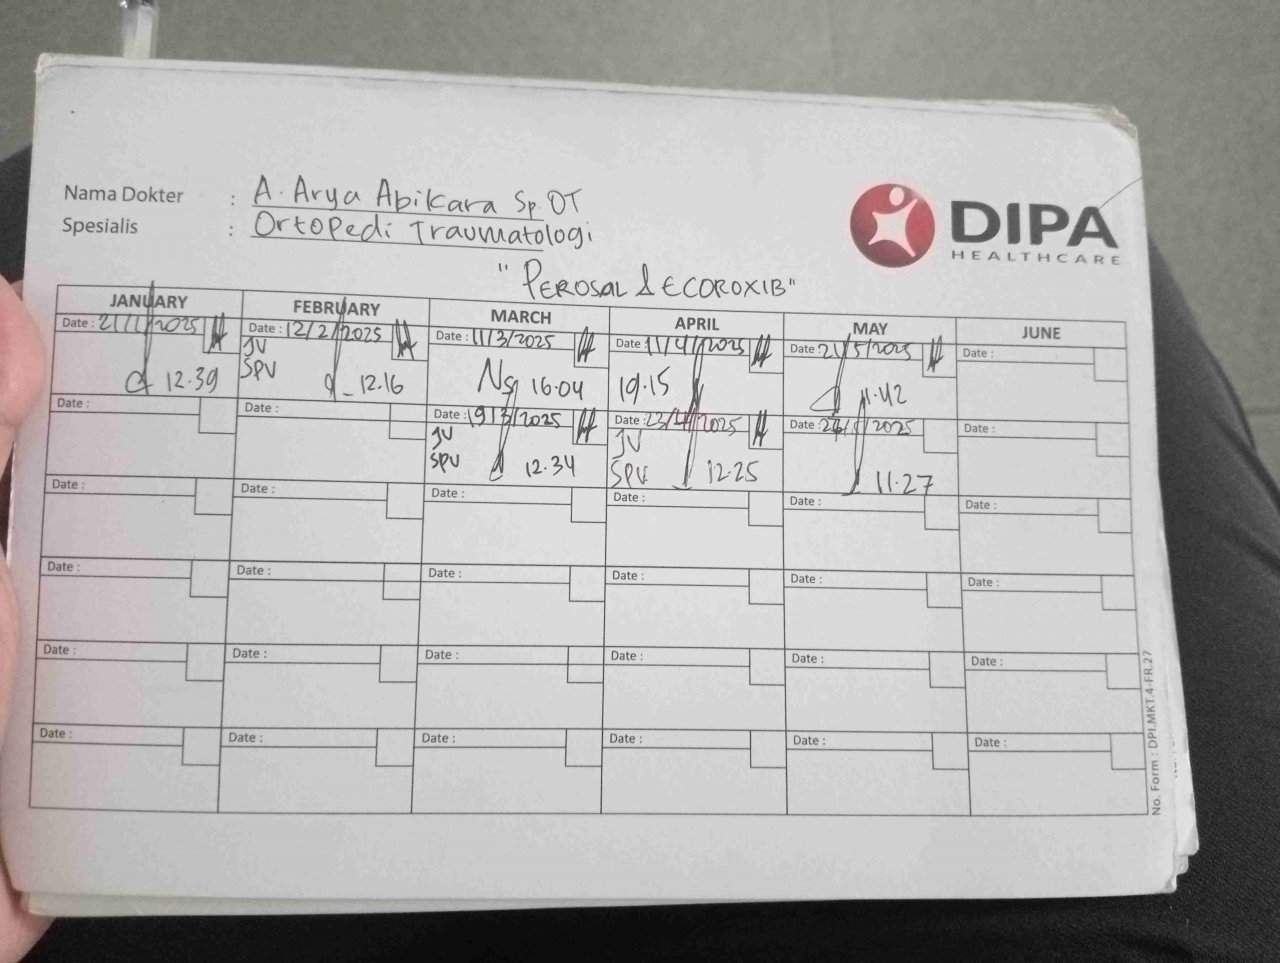 Nama Dokter : A. Arya Abikara Sp OT
Spesialis : Ortopedi Traumatologi
DIPA
HEALTHCARE
"PEROSAL & ECOROXIB"
JANUARY FEBRUARY MARCH APRIL MAY JUNE
Date : 21/1/2025 Date : 12/2/2025 Date : 11/3/2025 Date : 11/4/2025 Date : 21/5/2025 Date :
JV
SPV
12.39 12.16 16.04 19.15 11.42
Date : Date : Date : 19/3/2025 Date : 23/4/2025 Date : /2025 Date :
JV JV
SPV 12.34 SPV 12.25 11.27
Date : Date : Date : Date : Date : Date :
Date : Date : Date : Date : Date : Date :
Date : Date : Date : Date : Date : Date :
Date : Date : Date : Date : Date : Date :
No. Form : DPI.MKT.4-FR.27